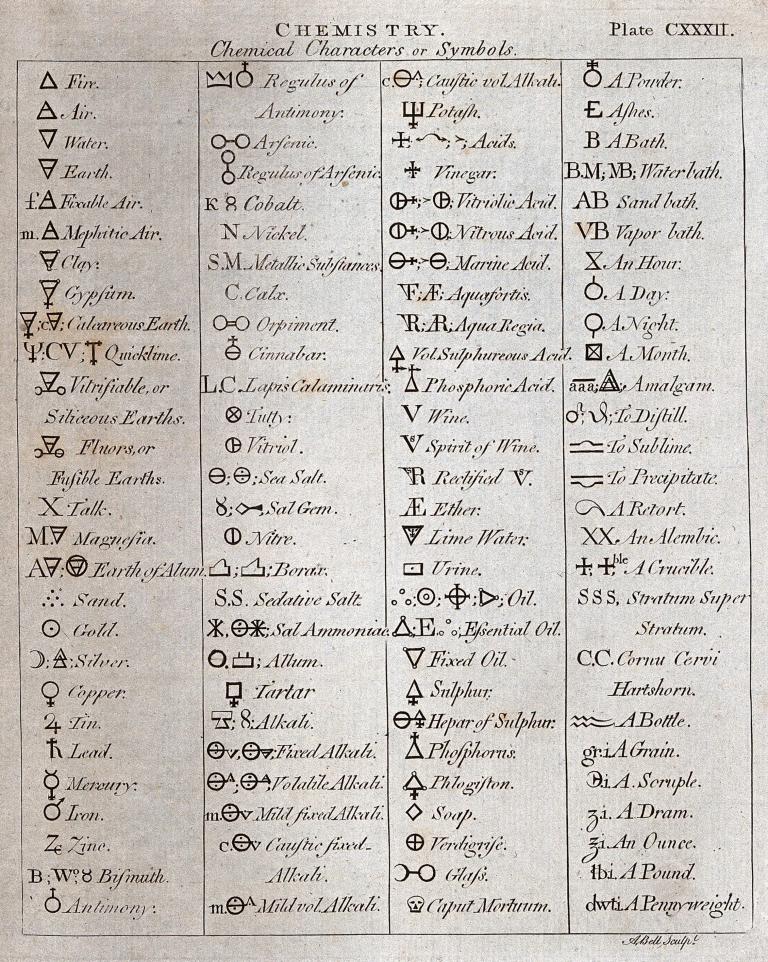 CHEMISTRY.
Plate CXXXII.
Chemical Characters or Symbols.
🜂 Fire.
🜁 Air.
🜄 Water.
🜃 Earth.
f.🜂 Fixable Air.
m.🜂 Mephitic Air.
Clay.
Gypsum.
Calcareous Earth.
CV; Quicklime.
Vitrifiable, or
Siliceous Earths.
Fluors, or
Fusible Earths.
X Talk.
M. Magnesia.
A; Earth of Alum.
Sand.
☉ Gold.
☽; Silver.
♀ Copper.
♃ Tin.
♄ Lead.
☿ Mercury.
♂ Iron.
Z Zinc.
B; W°; 8 Bismuth.
♁ Antimony.
Regulus of
Antimony.
Arsenic.
Regulus of Arsenic.
K 8 Cobalt.
N Nickel.
S.M. Metallic Substances.
C. Calx.
Orpiment.
Cinnabar.
L.C. Lapis Calaminaris.
⊗ Tutty.
Vitriol.
⊖; Sea Salt.
Sal Gem.
⦶ Nitre.
Borax.
S.S. Sedative Salt.
Sal Ammoniac.
Allum.
Tartar
8; Alkali.
Fixed Alkali.
Volatile Alkali.
m. Mild fixed Alkali.
c. Caustic fixed
Alkali.
m. Mild vol. Alkali.
c. Caustic vol. Alkali.
Potash.
Acids.
Vinegar.
Vitriolic Acid.
Nitrous Acid.
Marine Acid.
Æ; Aquafortis.
Aqua Regia.
Vol. Sulphureous Acid.
Phosphoric Acid.
V Wine.
Spirit of Wine.
Rectified V.
Æ Ether.
Lime Water.
Urine.
Oil.
E; Essential Oil.
Fixed Oil.
🜍 Sulphur.
Hepar of Sulphur.
Phosphorus.
Phlogiston.
◇ Soap.
⊕ Verdigrise.
Glass.
Caput Mortuum.
♁ A Powder.
Ashes.
B A Bath.
B.M; MB; Water bath.
AB Sand bath.
VB Vapor bath.
X An Hour.
A Day.
A Night.
⊠ A Month.
aaa; Amalgam.
To Distill.
To Sublime.
To Precipitate.
A Retort.
XX. An Alembic.
ble A Crucible.
SSS, Stratum Super
Stratum.
C.C. Cornu Cervi
Hartshorn.
A Bottle.
gr.i A Grain.
℈i. A Scruple.
ʒi. A Dram.
℥i. An Ounce.
℔i. A Pound.
dwti A Pennyweight.
A. Bell Sculpt.